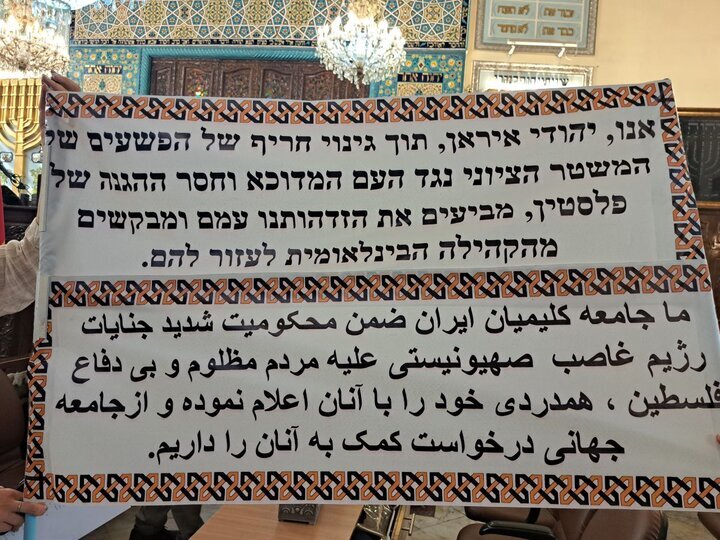 אנו, יהודי איראן, תוך גינוי חריף של הפשעים של
המשטר הציוני נגד העם המדוכא וחסר ההגנה של
פלסטין, מביעים את הזדהותנו עמם ומבקשים
מהקהילה הבינלאומית לעזור להם.
ما جامعه کلیمیان ایران ضمن محکومیت شدید جنایات
رژیم غاصب صهیونیستی علیه مردم مظلوم و بی دفاع
فلسطین ، همدردی خود را با آنان اعلام نموده و ازجامعه
جهانی درخواست کمک به آنان را داریم.